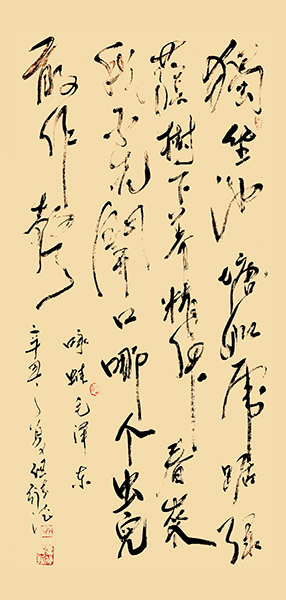 獨坐池塘如虎踞綠
蔭樹下养精神春來
我不先開口哪个虫兒
敢作聲
咏蛙毛澤东
辛丑之夏